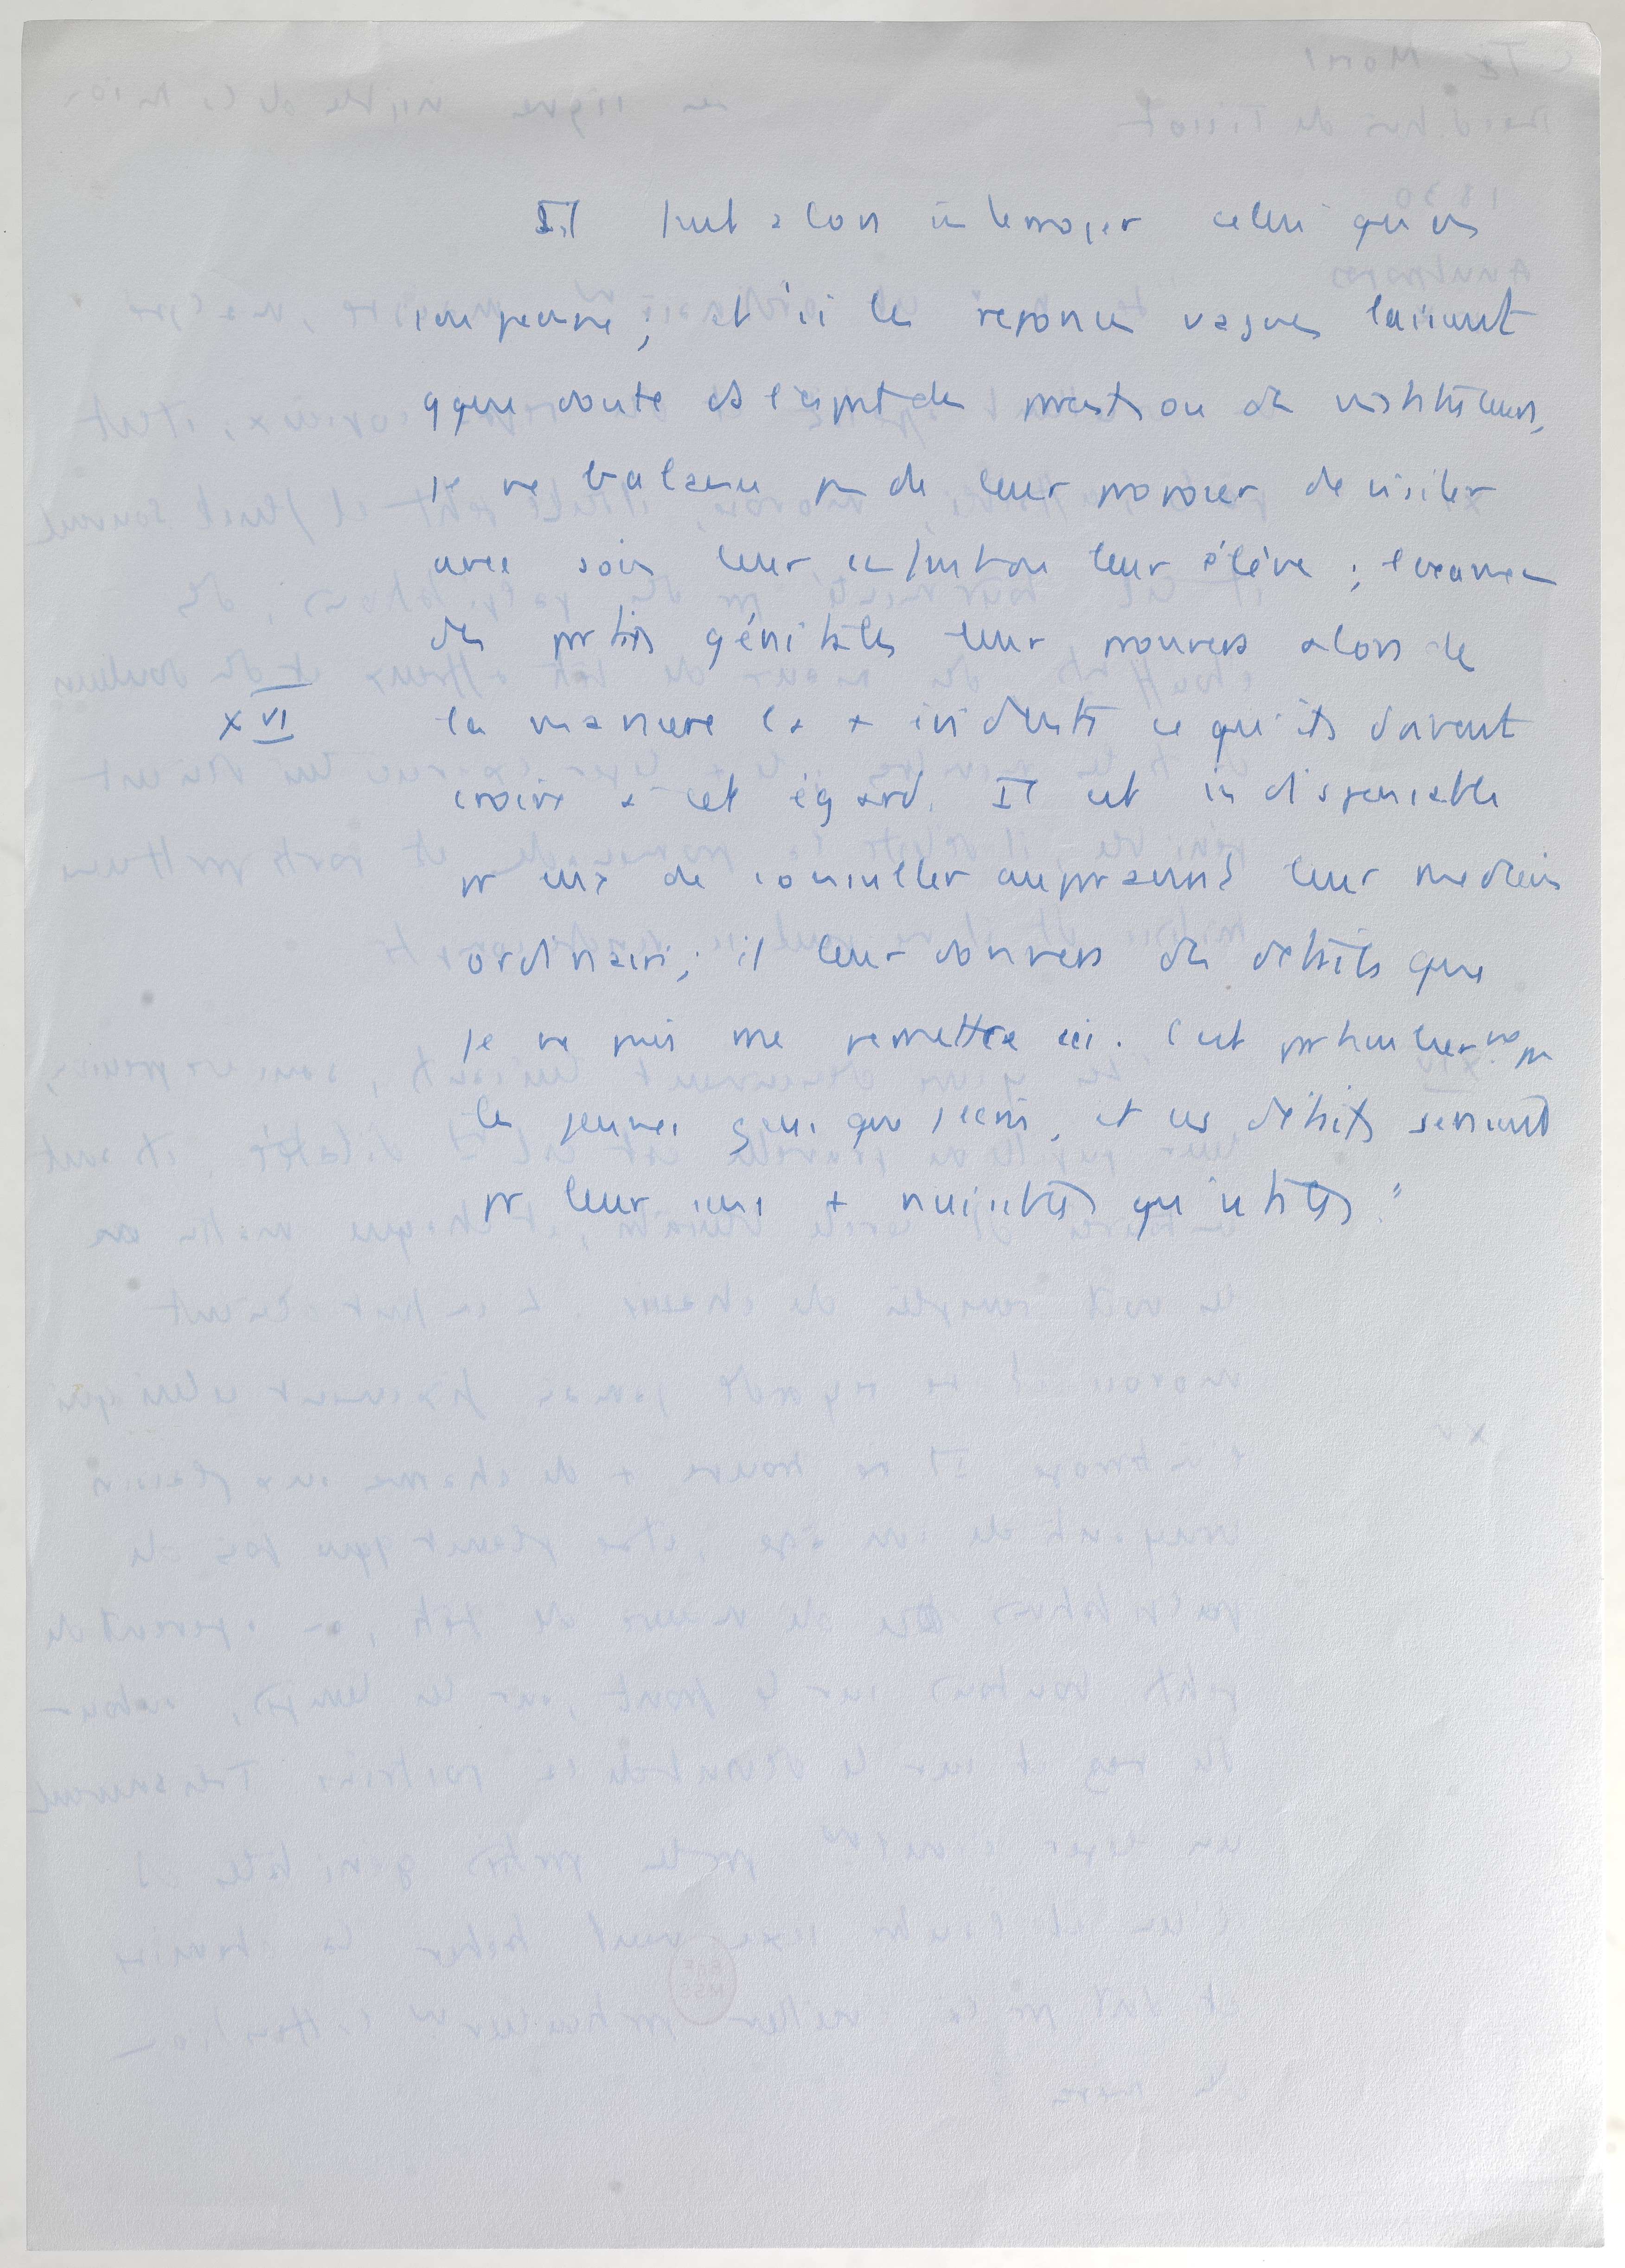 Il faut alors interroger celui qu'on
soupçonne ; et si les réponses vagues laissent
qque doute ds l'esprit des parents ou des instituteurs,
je ne balance pas de leur proposer de visiter
avec soin leur enfant ou leur élève ; l'examen
des parties génitales leur prouvera alors de
XVI la manière la + évidente ce qu'ils doivent
croire à cet égard. Il est indispensable
pr eux de consulter auparavant leur médecin
ordinaire ; il leur donnera des détails que
je ne puis me permettre ici. C'est particulièrement pr
les jeunes gens que j'écris, et ces détails seraient
pr leur sens + nuisibles qu'utiles "